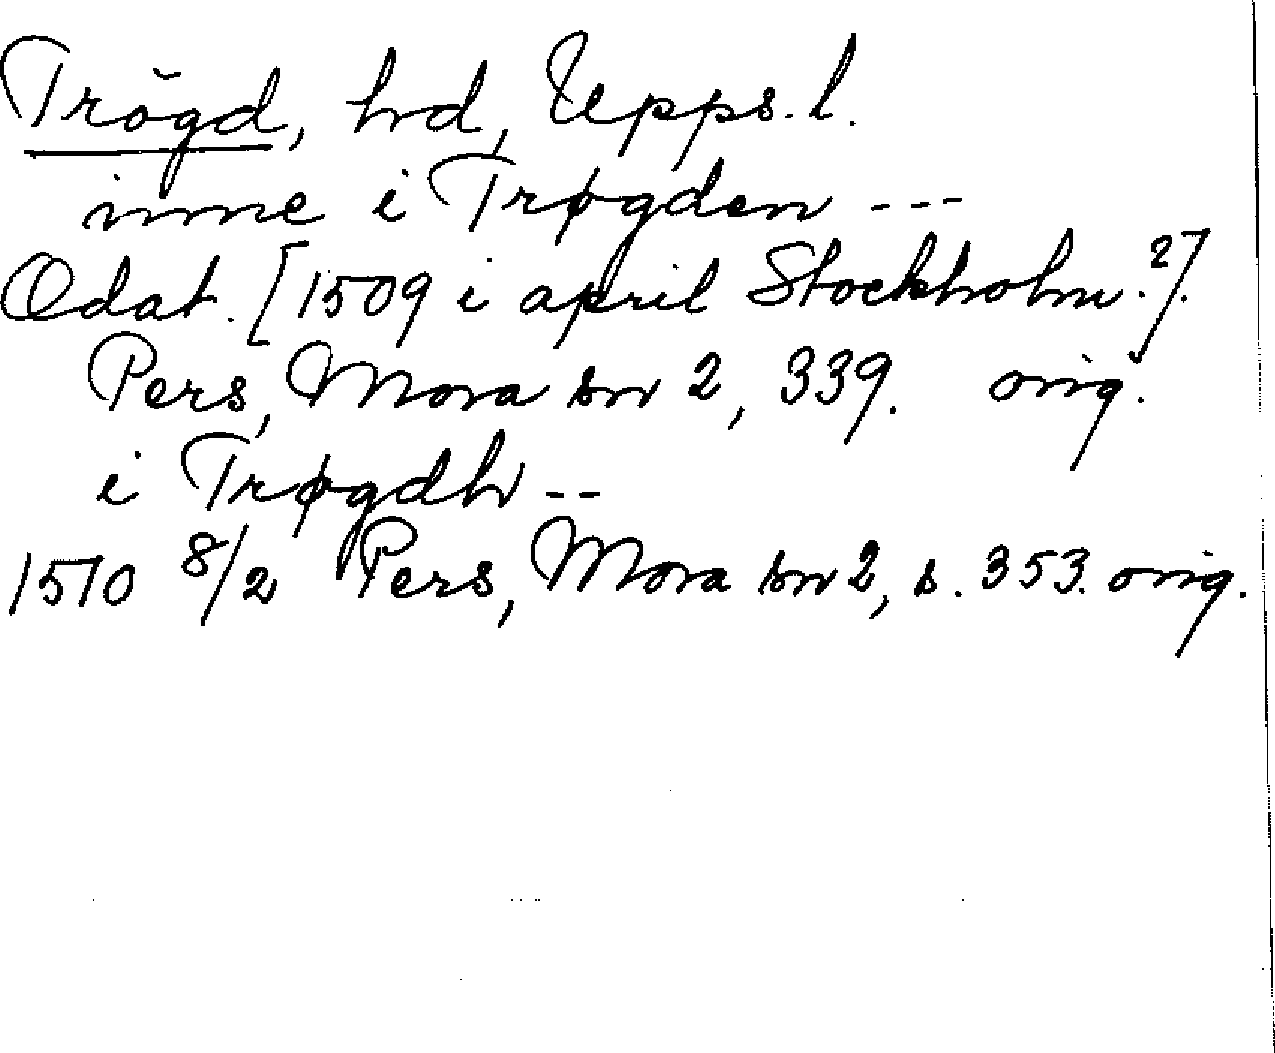 Trögd, hd, Upps. l.
inne i Trøgden ---
Odat. [1509 i april Stockholm.?].
Pers, Mora sn 2, 339. orig.
i Trøgdh --
1510 8/2 Pers, Mora sn 2, s. 353. orig.